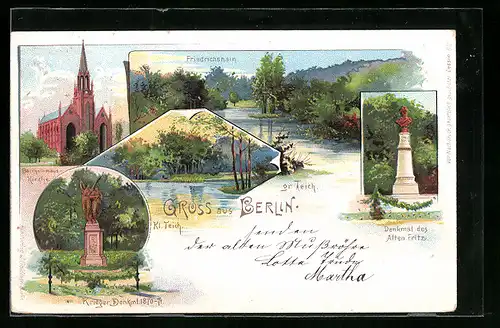 Friedrichshain
Bartholomäus
Kirche
Gr. Teich.
GRUSS aus BERLIN.
Kl. Teich.
Denkmal des
Alten Fritz.
Krieger Denkml. 1870-71.
senden
der alten
Lotte
Martha